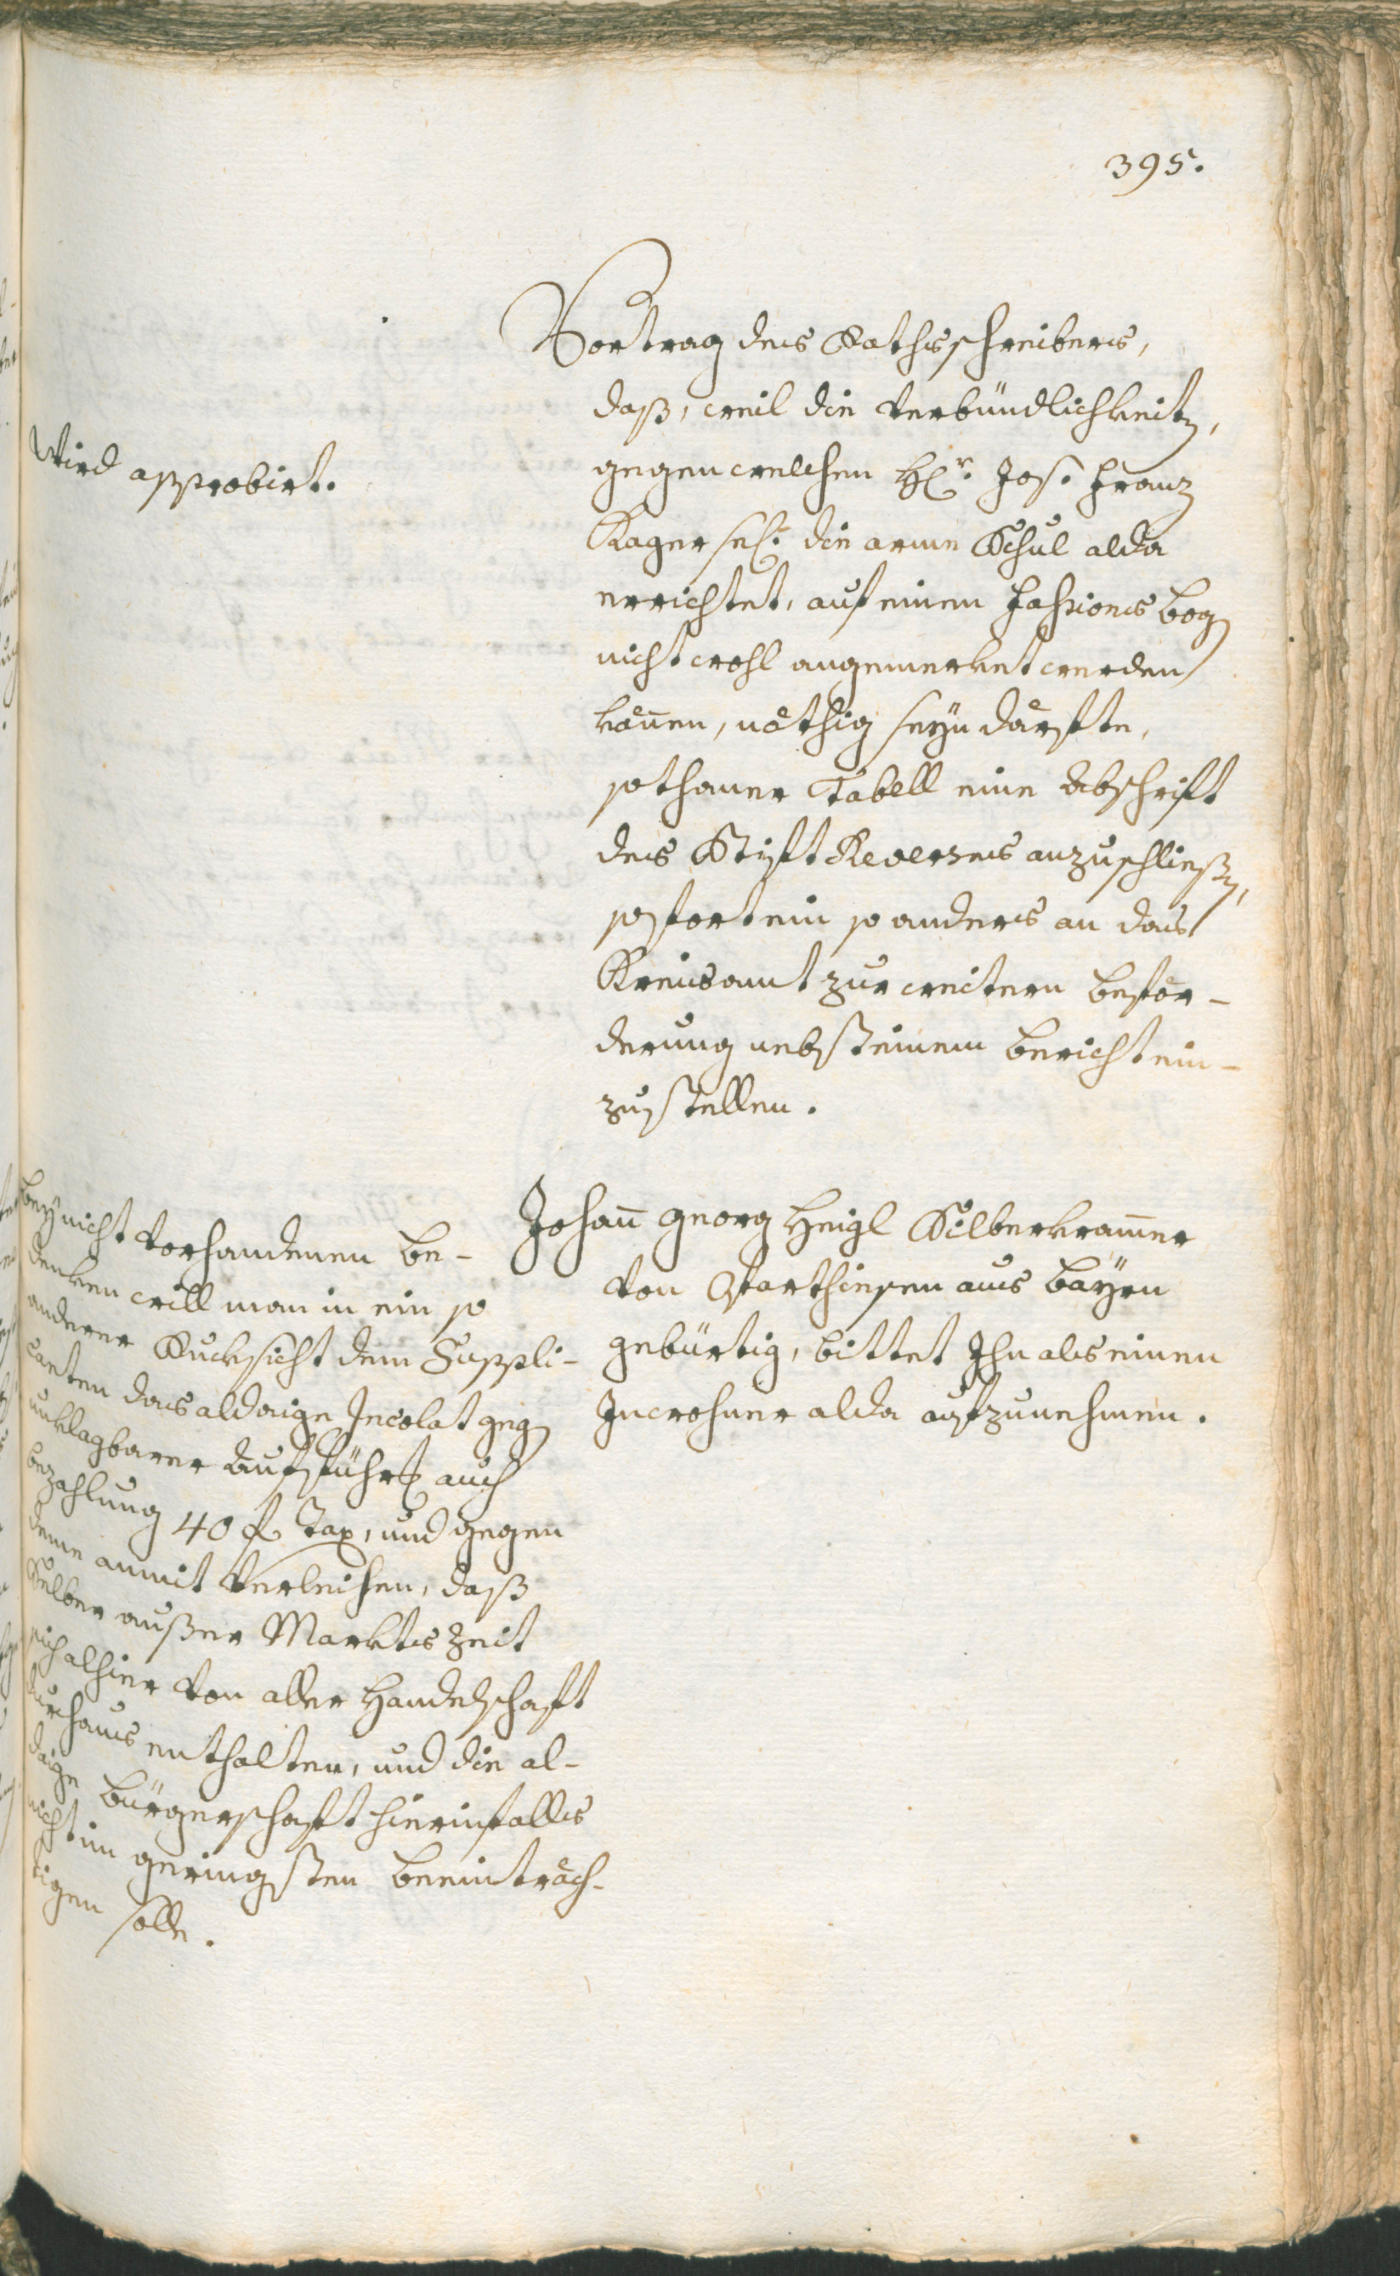 395.
Vortrag des Rathsschreibers,
daß, weil die Verbündlichkeitn,
gegen welchen Hl.r Jos. Franz
Kager sel. die arme Schul alda
errichtet, auf einem Fassions bogn
nicht wohl angemerket werden
können, nöthig seyn dörfte,
sothaner Tabell eine Abschrift
des Stift Reverses anzuschließn,
sofort ein so anders an das
Kreisamt zur weitern beför-
derung nebst einem bericht ein-
zustellen.
Wird approbirt.
Johan̄ Georg Heigl Silberkram̄er
von aus Bayrn
gebürtig, bittet Ihn als einen
Inwohner alda aufzunehmen.
Bey nicht Vorhandenen be-
denken will man in ein so
anderer Rucksicht dem Suppli-
canten das aldaige Incolat gegn
unklagbarer Aufführ. auch
bezahlung 40 f Tax, und gegen
deme anmit Verleihen, daß
Selber außer Markts Zeit
sich alhier von aller Handelschaft
durchaus enthalten, und die al-
daige Bürgerschaft hierinfalls
nicht im geringsten beeinträch-
tigen solle.